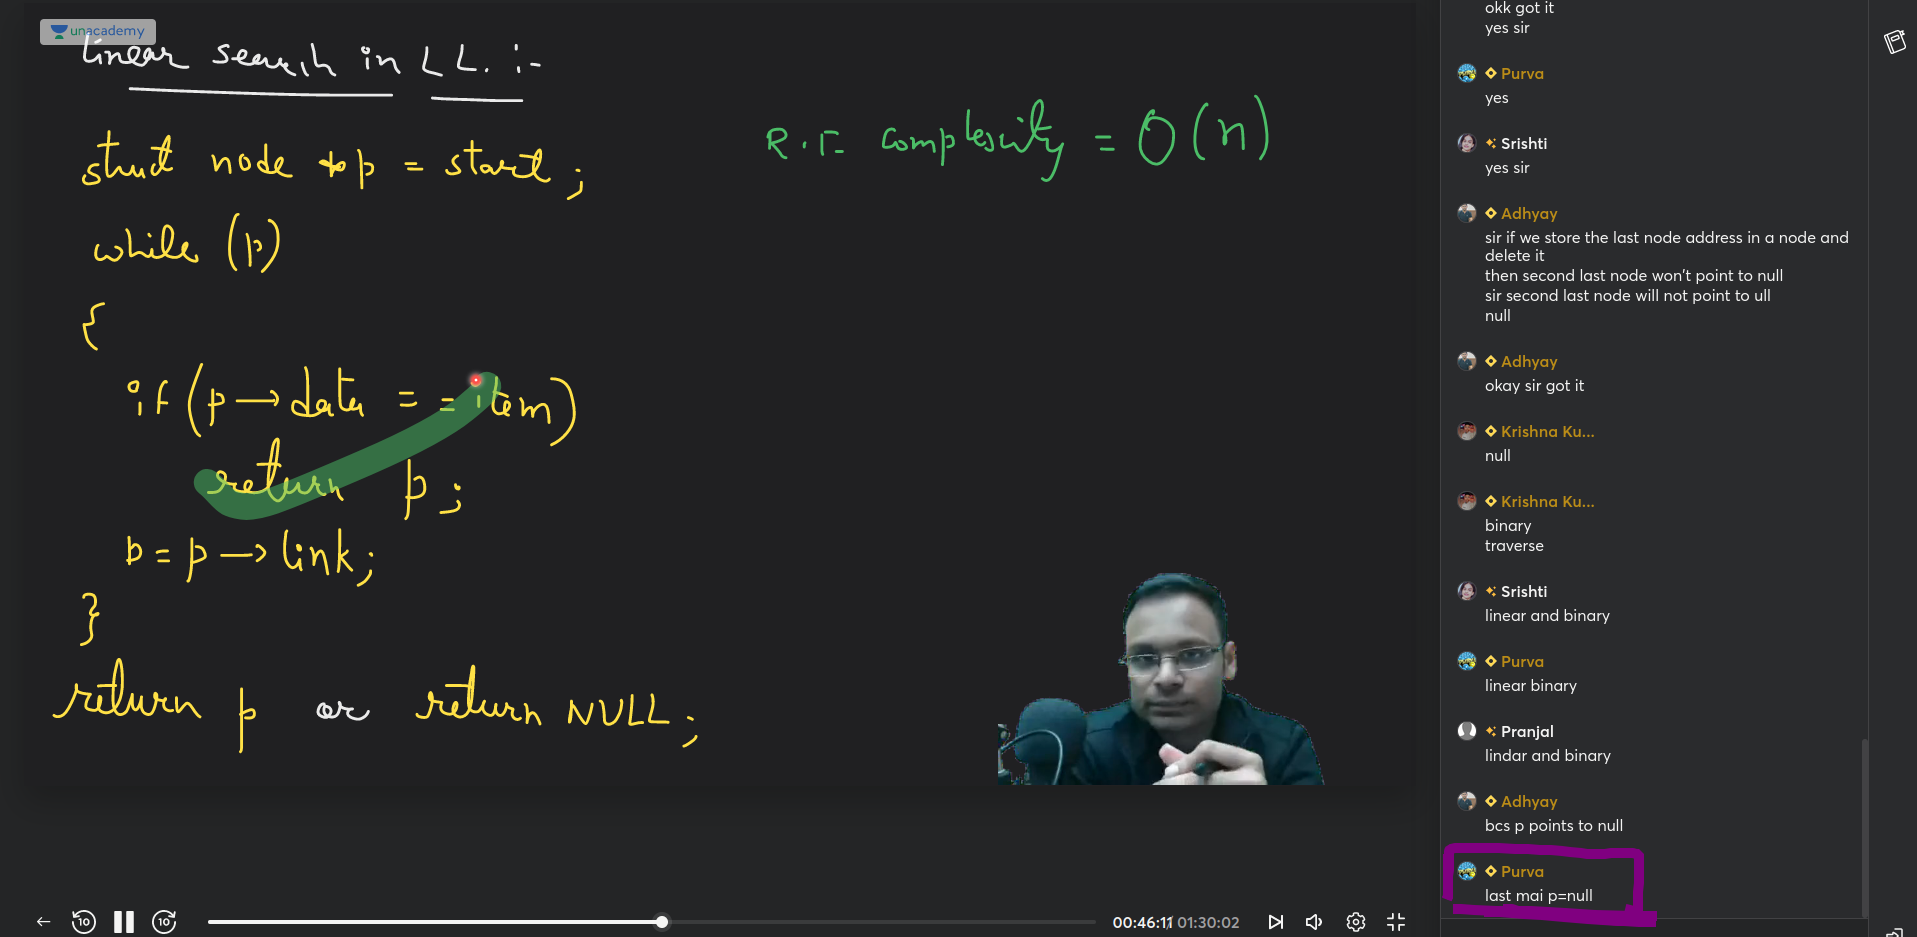 unacademy
linear search in LL. :-
struct node *p = start;
while (p)
{
if (p → data = = item)
return p;
p = p → link;
}
return p or return NULL;
R.T. complexity = O(n)
00:46:11 / 01:30:02
okk got it
yes sir
Purva
yes
Srishti
yes sir
Adhyay
sir if we store the last node address in a node and
delete it
then second last node won't point to null
sir second last node will not point to ull
null
Adhyay
okay sir got it
Krishna Ku...
null
Krishna Ku...
binary
traverse
Srishti
linear and binary
Purva
linear binary
Pranjal
lindar and binary
Adhyay
bcs p points to null
Purva
last mai p=null
10
10